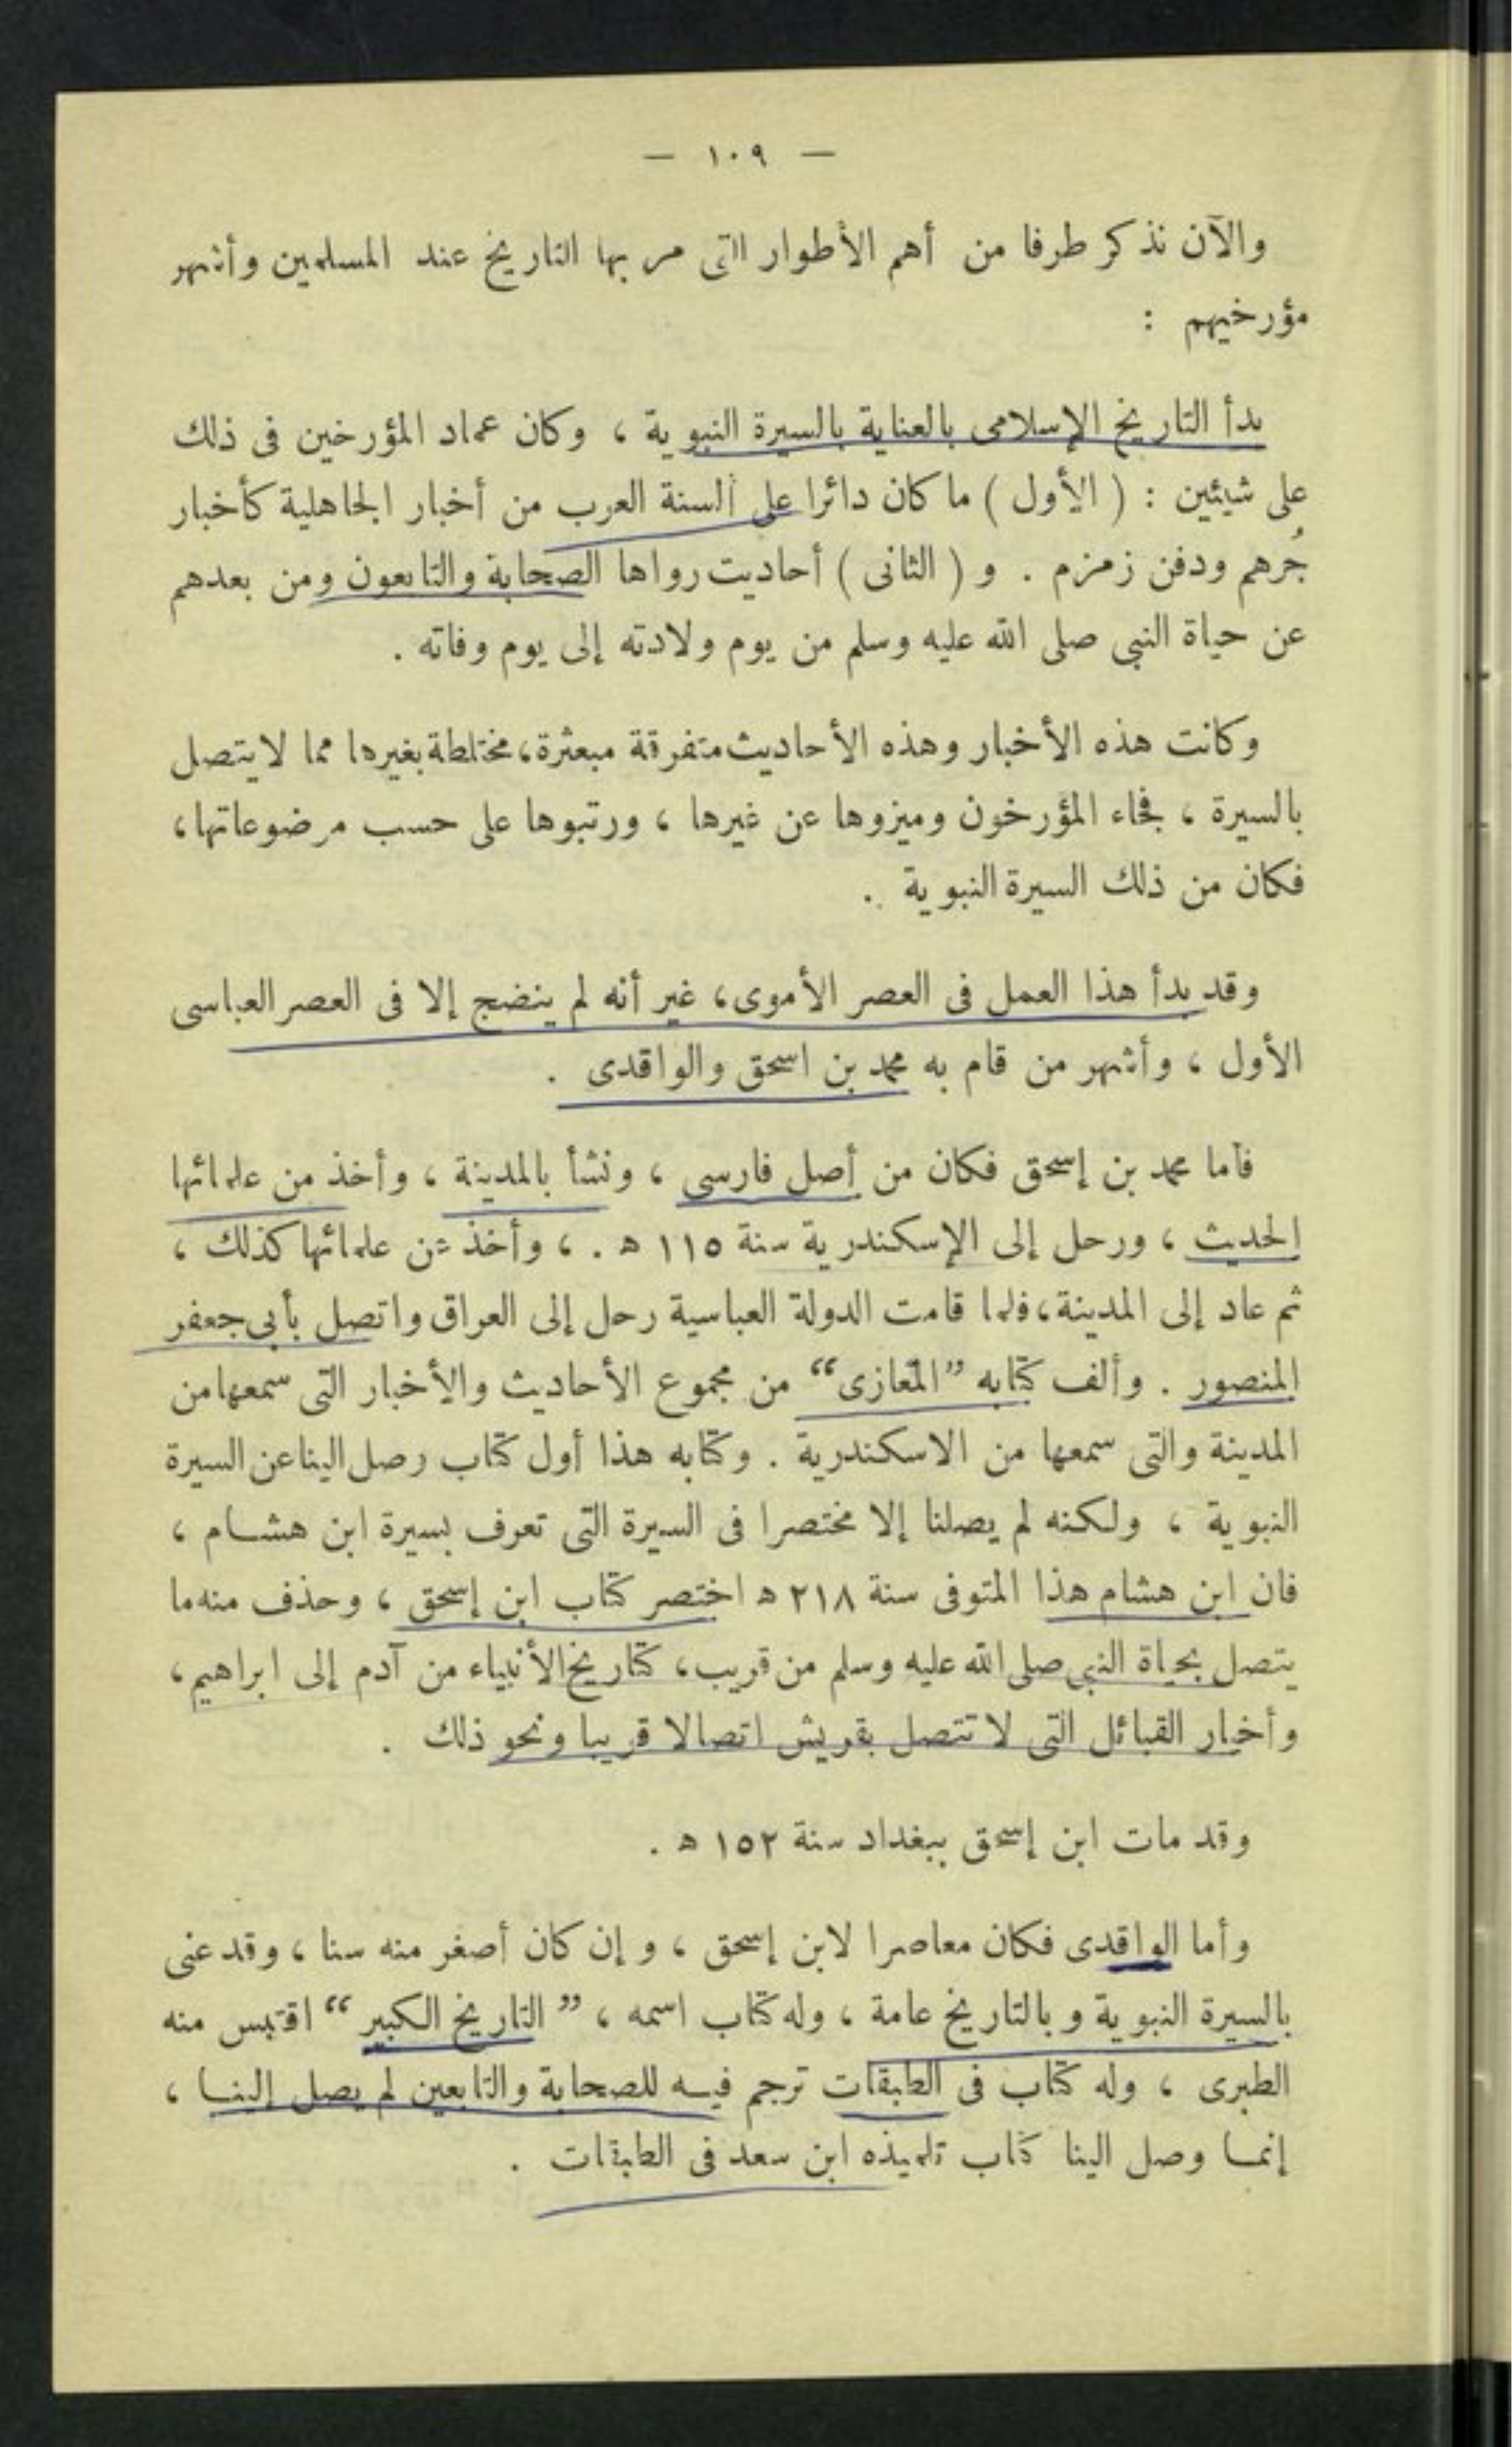 — ١٠٩ —
والآن نذكر طرفا من أهم الأطوار التى مر بها التاريخ عند المسلمين وأشهر
مؤرخيهم :
بدأ التاريخ الإسلامى بالعناية بالسيرة النبوية ، وكان عماد المؤرخين فى ذلك
على شيئين : ( الأول ) ما كان دائرا على ألسنة العرب من أخبار الجاهلية كأخبار
جُرهم ودفن زمزم . و ( الثانى ) أحاديث رواها الصحابة والتابعون ومن بعدهم
عن حياة النبى صلى الله عليه وسلم من يوم ولادته إلى يوم وفاته .
وكانت هذه الأخبار وهذه الأحاديث متفرقة مبعثرة، مختلطة بغيرها مما لا يتصل
بالسيرة ، فجاء المؤرخون وميزوها عن غيرها ، ورتبوها على حسب موضوعاتها،
فكان من ذلك السيرة النبوية .
وقد بدأ هذا العمل فى العصر الأموى، غير أنه لم ينضج إلا فى العصر العباسى
الأول ، وأشهر من قام به محمد بن اسحق والواقدى .
فأما محمد بن إسحق فكان من أصل فارسى ، ونشأ بالمدينة ، وأخذ من علمائها
الحديث ، ورحل إلى الإسكندرية سنة ١١٥ ه . ، وأخذ عن علمائها كذلك ،
ثم عاد إلى المدينة، فلما قامت الدولة العباسية رحل إلى العراق واتصل بأبى جعفر
المنصور . وألف كتابه ”المغازى“ من مجموع الأحاديث والأخبار التى سمعها من
المدينة والتى سمعها من الاسكندرية . وكتابه هذا أول كتاب وصل الينا عن السيرة
النبوية ، ولكنه لم يصلنا إلا مختصرا فى السيرة التى تعرف بسيرة ابن هشام ،
فان ابن هشام هذا المتوفى سنة ٢١٨ ه اختصر كتاب ابن إسحق ، وحذف منه ما
يتصل بحياة النبى صلى الله عليه وسلم من قريب، كتاريخ الأنبياء من آدم إلى ابراهيم،
وأخبار القبائل التى لا تتصل بقريش اتصالا قريبا ونحو ذلك .
وقد مات ابن إسحق ببغداد سنة ١٥٢ ه .
وأما الواقدى فكان معاصرا لابن إسحق ، وإن كان أصغر منه سنا ، وقد عنى
بالسيرة النبوية وبالتاريخ عامة ، وله كتاب اسمه ، ”التاريخ الكبير“ اقتبس منه
الطبرى ، وله كتاب فى الطبقات ترجم فيه للصحابة والتابعين لم يصل إلينا ،
إنما وصل الينا كتاب تلميذه ابن سعد فى الطبقات .